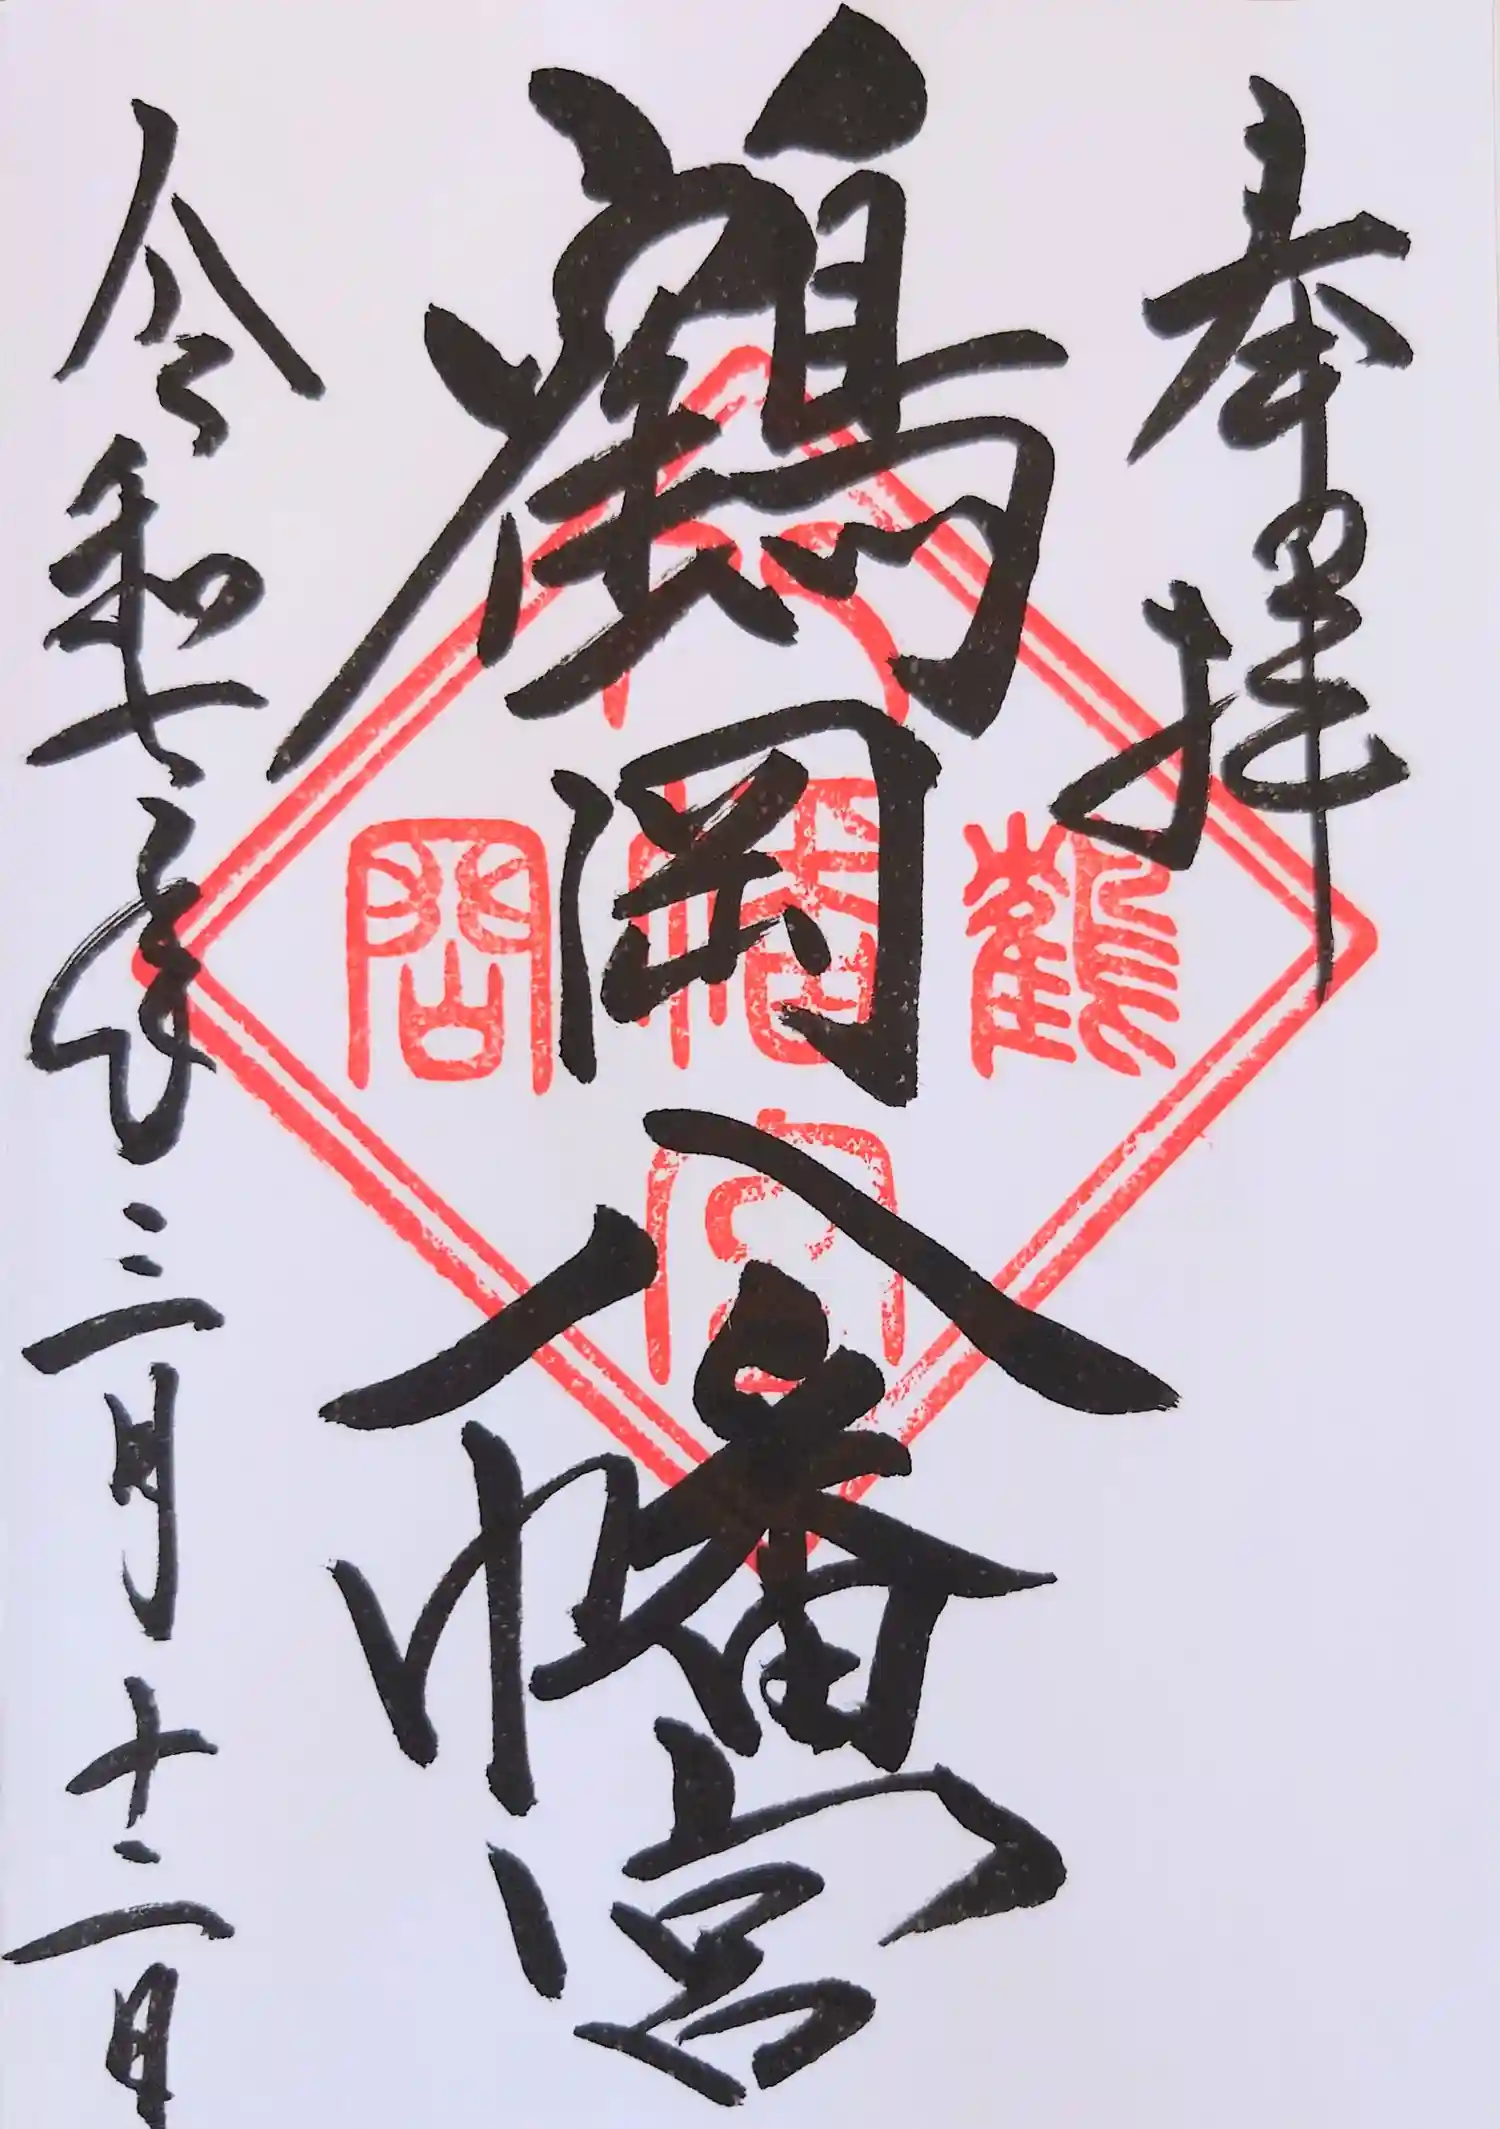 奉拝
鶴岡八幡宮
令和七年三月十二日
鶴岡八幡宮